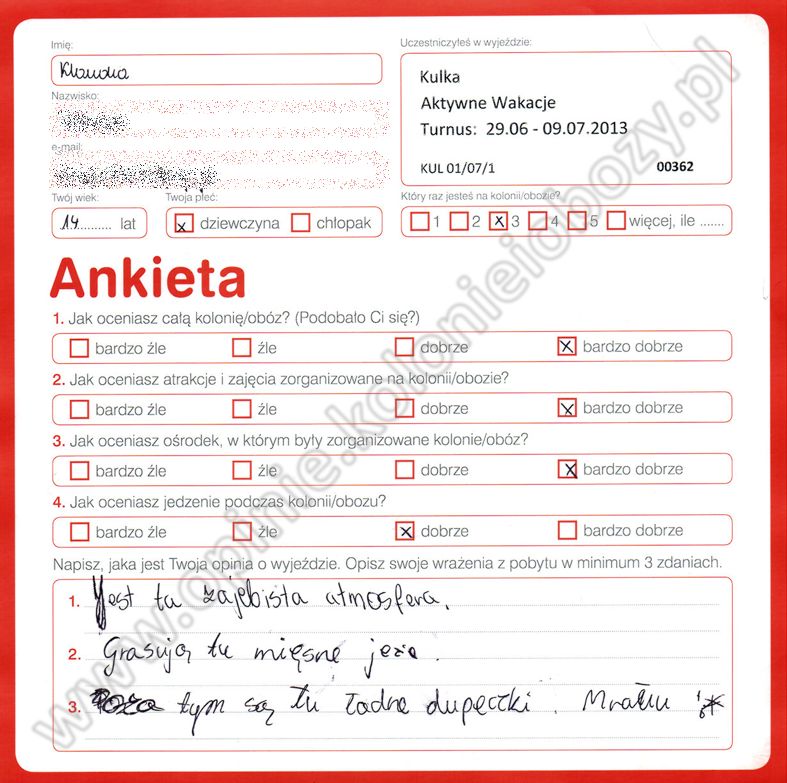 Imię:
Klaudia
Nazwisko:
e-mail:
Twój wiek:
14 lat
Twoja płeć:
x dziewczyna chłopak
Uczestniczyłeś w wyjeździe:
Kulka
Aktywne Wakacje
Turnus: 29.06 - 09.07.2013
KUL 01/07/1 00362
Który raz jesteś na kolonii/obozie?
1 2 x 3 4 5 więcej, ile .......
Ankieta
1. Jak oceniasz całą kolonię/obóz? (Podobało Ci się?)
bardzo źle źle dobrze x bardzo dobrze
2. Jak oceniasz atrakcje i zajęcia zorganizowane na kolonii/obozie?
bardzo źle źle dobrze x bardzo dobrze
3. Jak oceniasz ośrodek, w którym były zorganizowane kolonie/obóz?
bardzo źle źle dobrze x bardzo dobrze
4. Jak oceniasz jedzenie podczas kolonii/obozu?
bardzo źle źle x dobrze bardzo dobrze
Napisz, jaka jest Twoja opinia o wyjeździe. Opisz swoje wrażenia z pobytu w minimum 3 zdaniach.
1. Jest tu zajebista atmosfera.
2. Grasują tu mięsne jeże.
3. Poza tym są tu ładne dupeczki. Mrału ;*
www.opinie.kolonieiobozy.pl